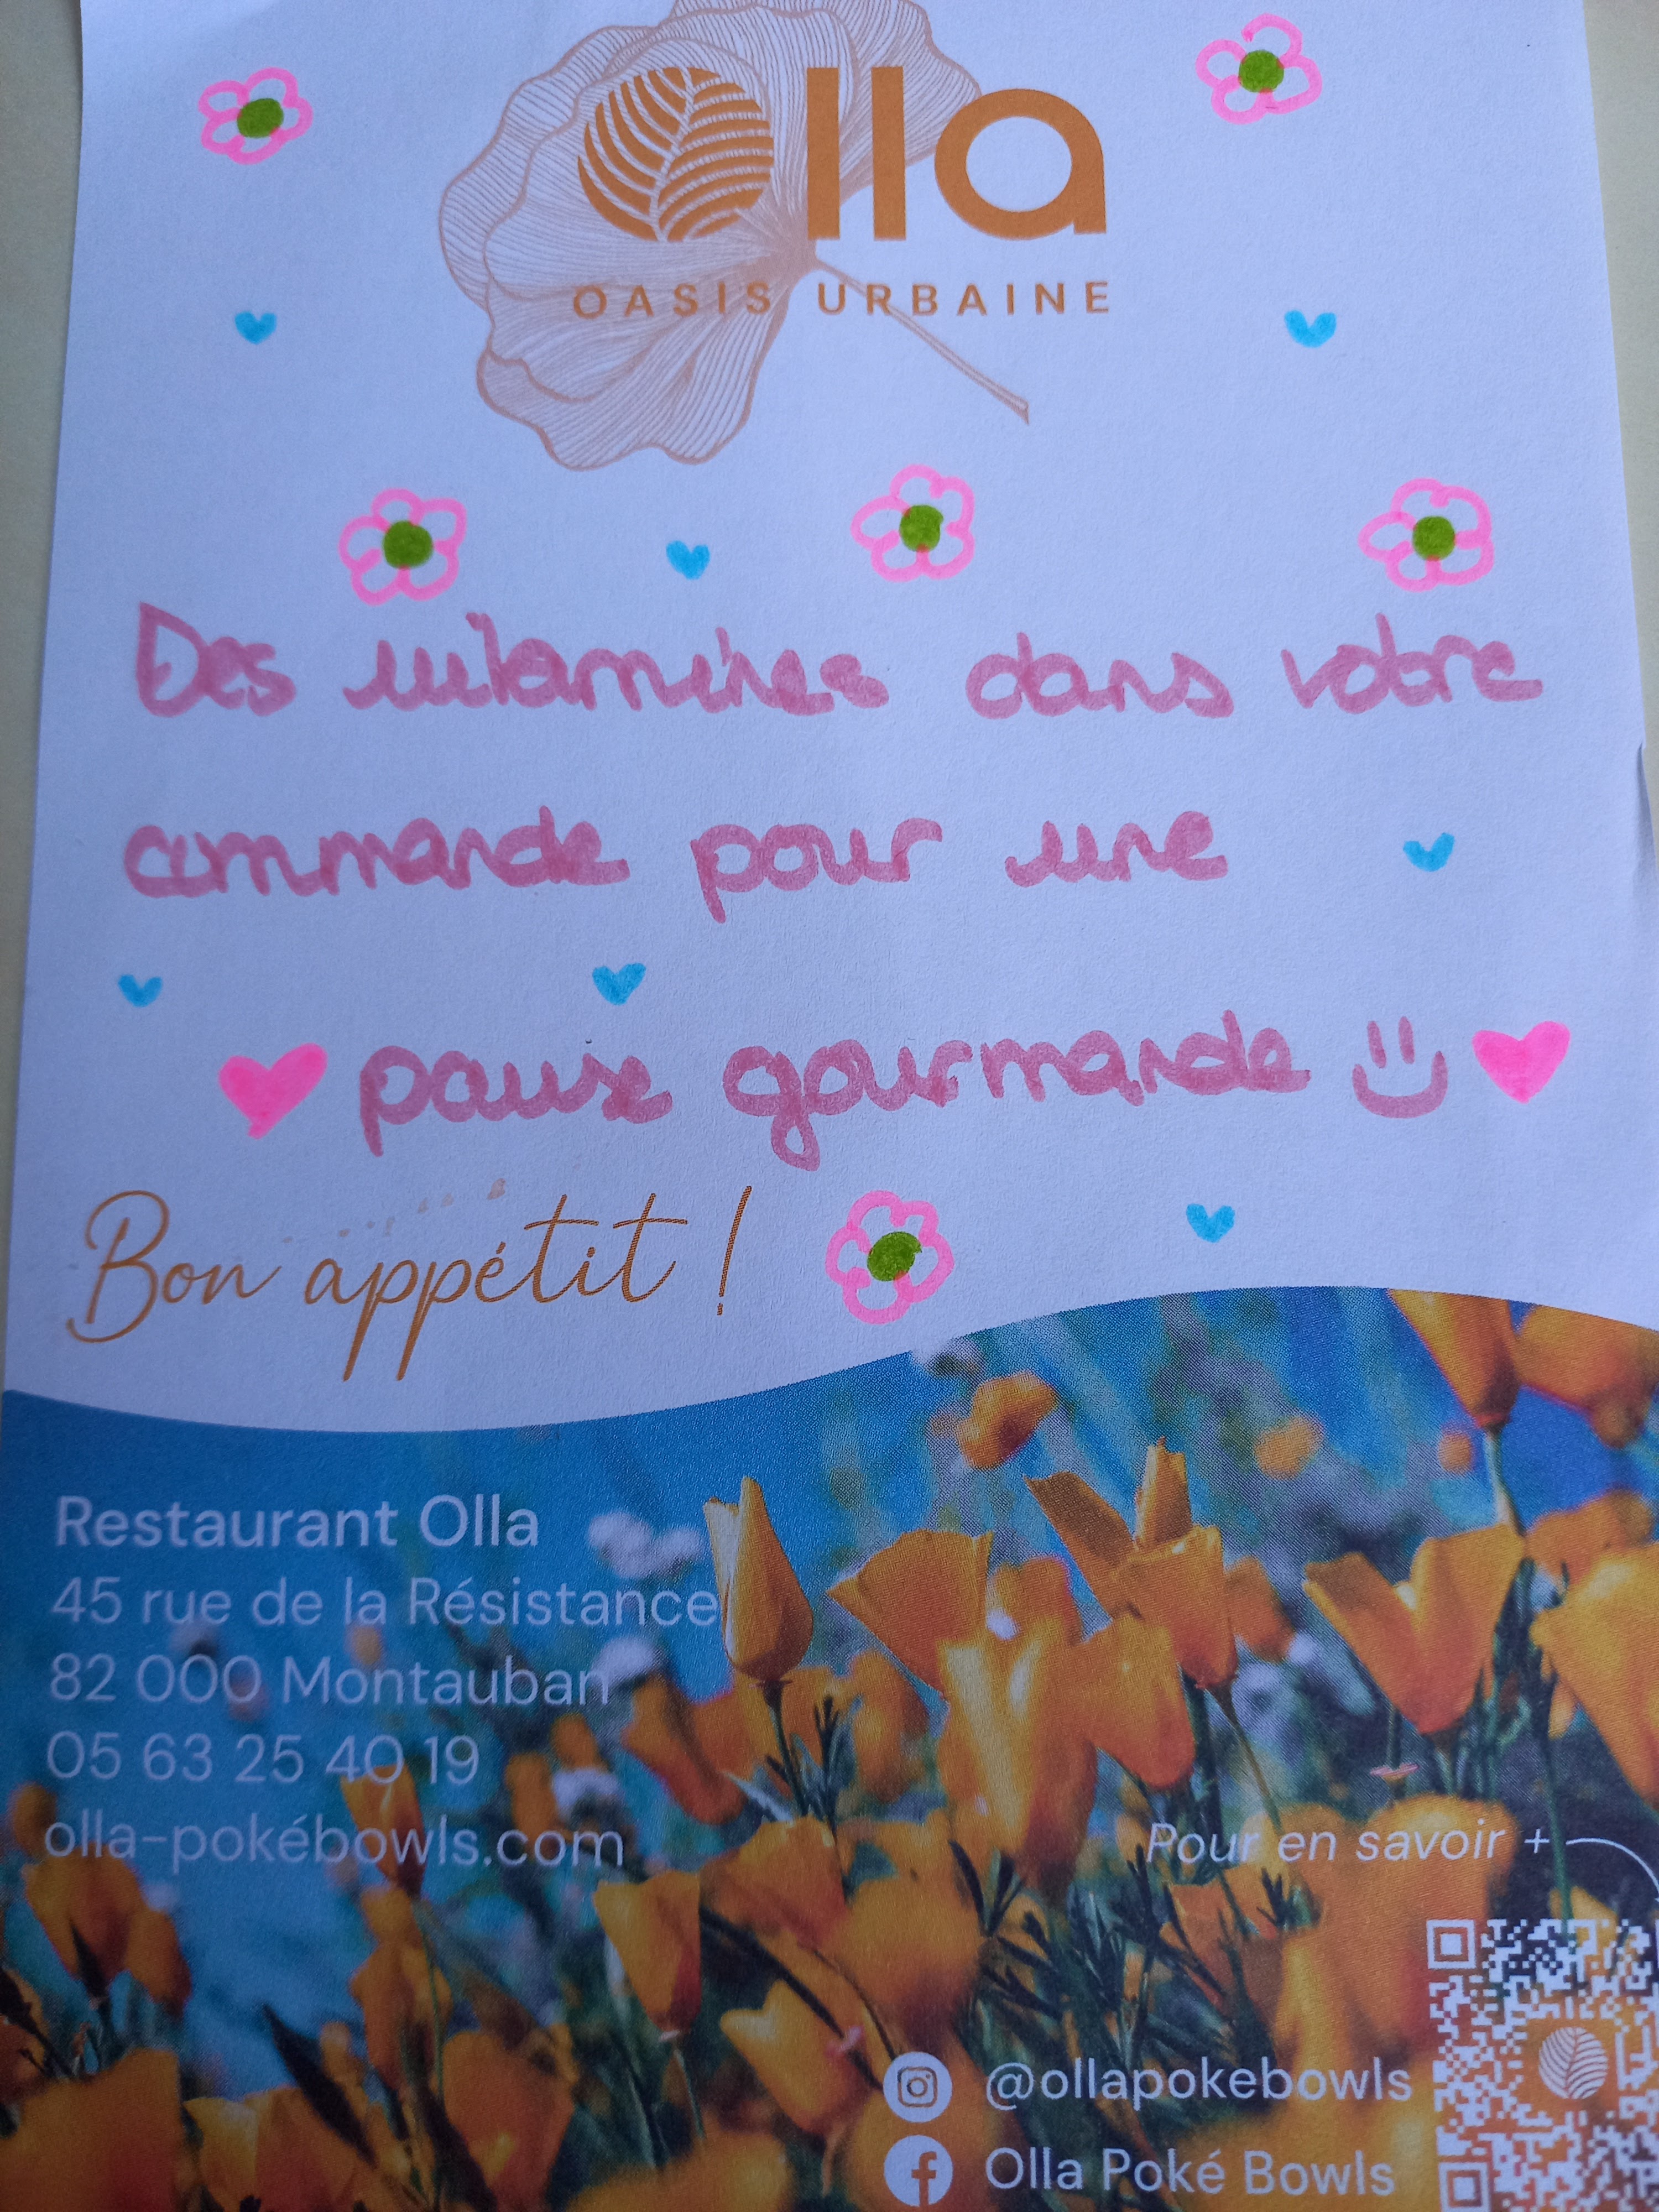 Olla
OASIS URBAINE
Des vitamines dans votre
commande pour une
pause gourmande
Bon appétit !
Restaurant Olla
45 rue de la Résistance
82 000 Montauban
05 63 25 40 19
olla-pokébowls.com
Pour en savoir +
@ollapokebowls
Olla Poké Bowls